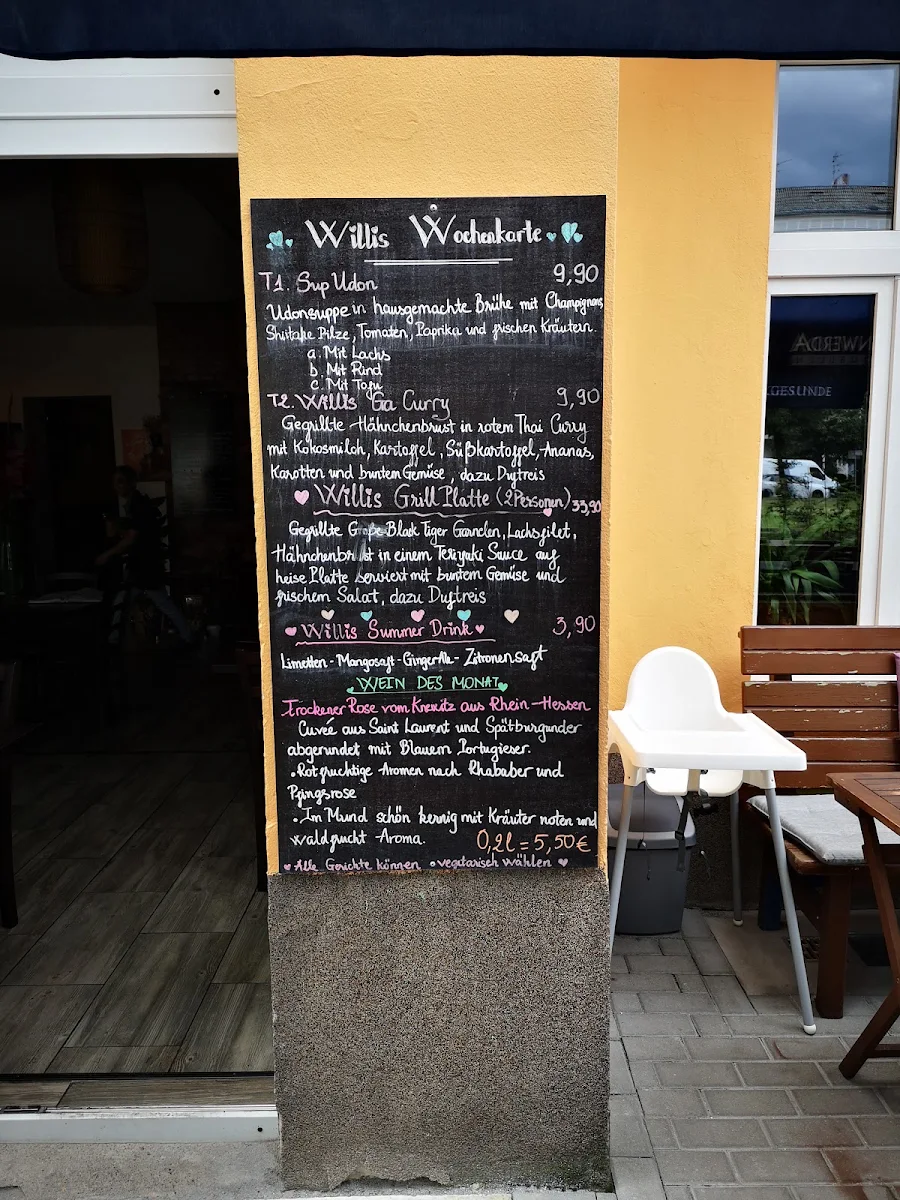 Willis Wochenkarte
T1. Sup Udon 9,90
Udonsuppe in hausgemachte Brühe mit Champignons
Shiitake Pilze, Tomaten, Paprika und frischen Kräutern.
a. Mit Lachs
b. Mit Rind
c. Mit Tofu
T2. Willis Ga Curry 9,90
Gegrillte Hähnchenbrust in rotem Thai Curry
mit Kokosmilch, Kartoffel, Süßkartoffel, Ananas,
Karotten und buntem Gemüse, dazu Duftreis
Willis Grill Platte (2 Personen) 33,90
Gegrillte Große Black Tiger Garnelen, Lachsfilet,
Hähnchenbrust in einem Teriyaki Sauce auf
heise Platte serviert mit buntem Gemüse und
frischem Salat, dazu Duftreis
Willis Summer Drink 3,90
Limetten - Mangosaft - Ginger Ale - Zitronensaft
WEIN DES MONAT
Trockener Rose vom Kreutz aus Rhein-Hessen
Cuveé aus Saint Laurent und Spätburgunder
abgerundet mit Blauem Portugieser.
• Rotfruchtige Aromen nach Rhababer und
Pfingsrose
• Im Mund schön kernig mit Kräuter noten und
waldfrucht Aroma. 0,2l = 5,50€
Alle Gerichte können vegetarisch wählen
GESUNDE